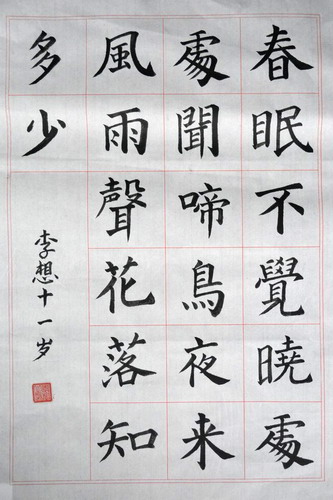 春眠不覺曉處
處聞啼鳥夜来
風雨聲花落知
多少
李想十一岁